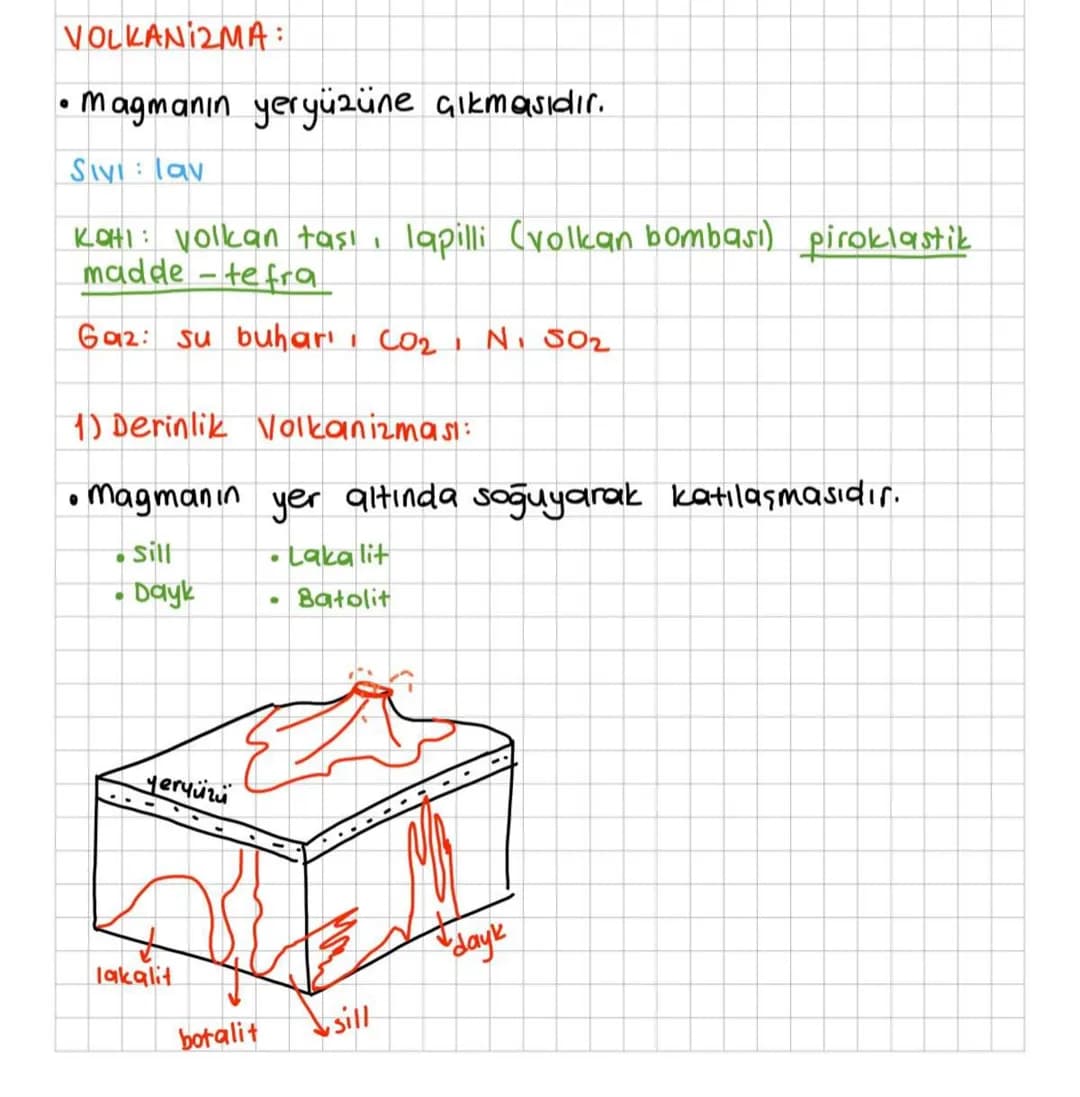 VOLKANİZMA:
• Magmanın yeryüzüne çıkmasıdır.
Sıvı: lav
Katı: volkan taşı, lapilli (volkan bombası) piroklastik
madde - tefra
Gaz: su buharı, CO2, N, SO2
1) Derinlik Volkanizması:
• Magmanın yer altında soğuyarak katılaşmasıdır.
• Sill • Lakalit
• Dayk • Batolit
yeryüzü
dayk
lakalit
sill
botalit